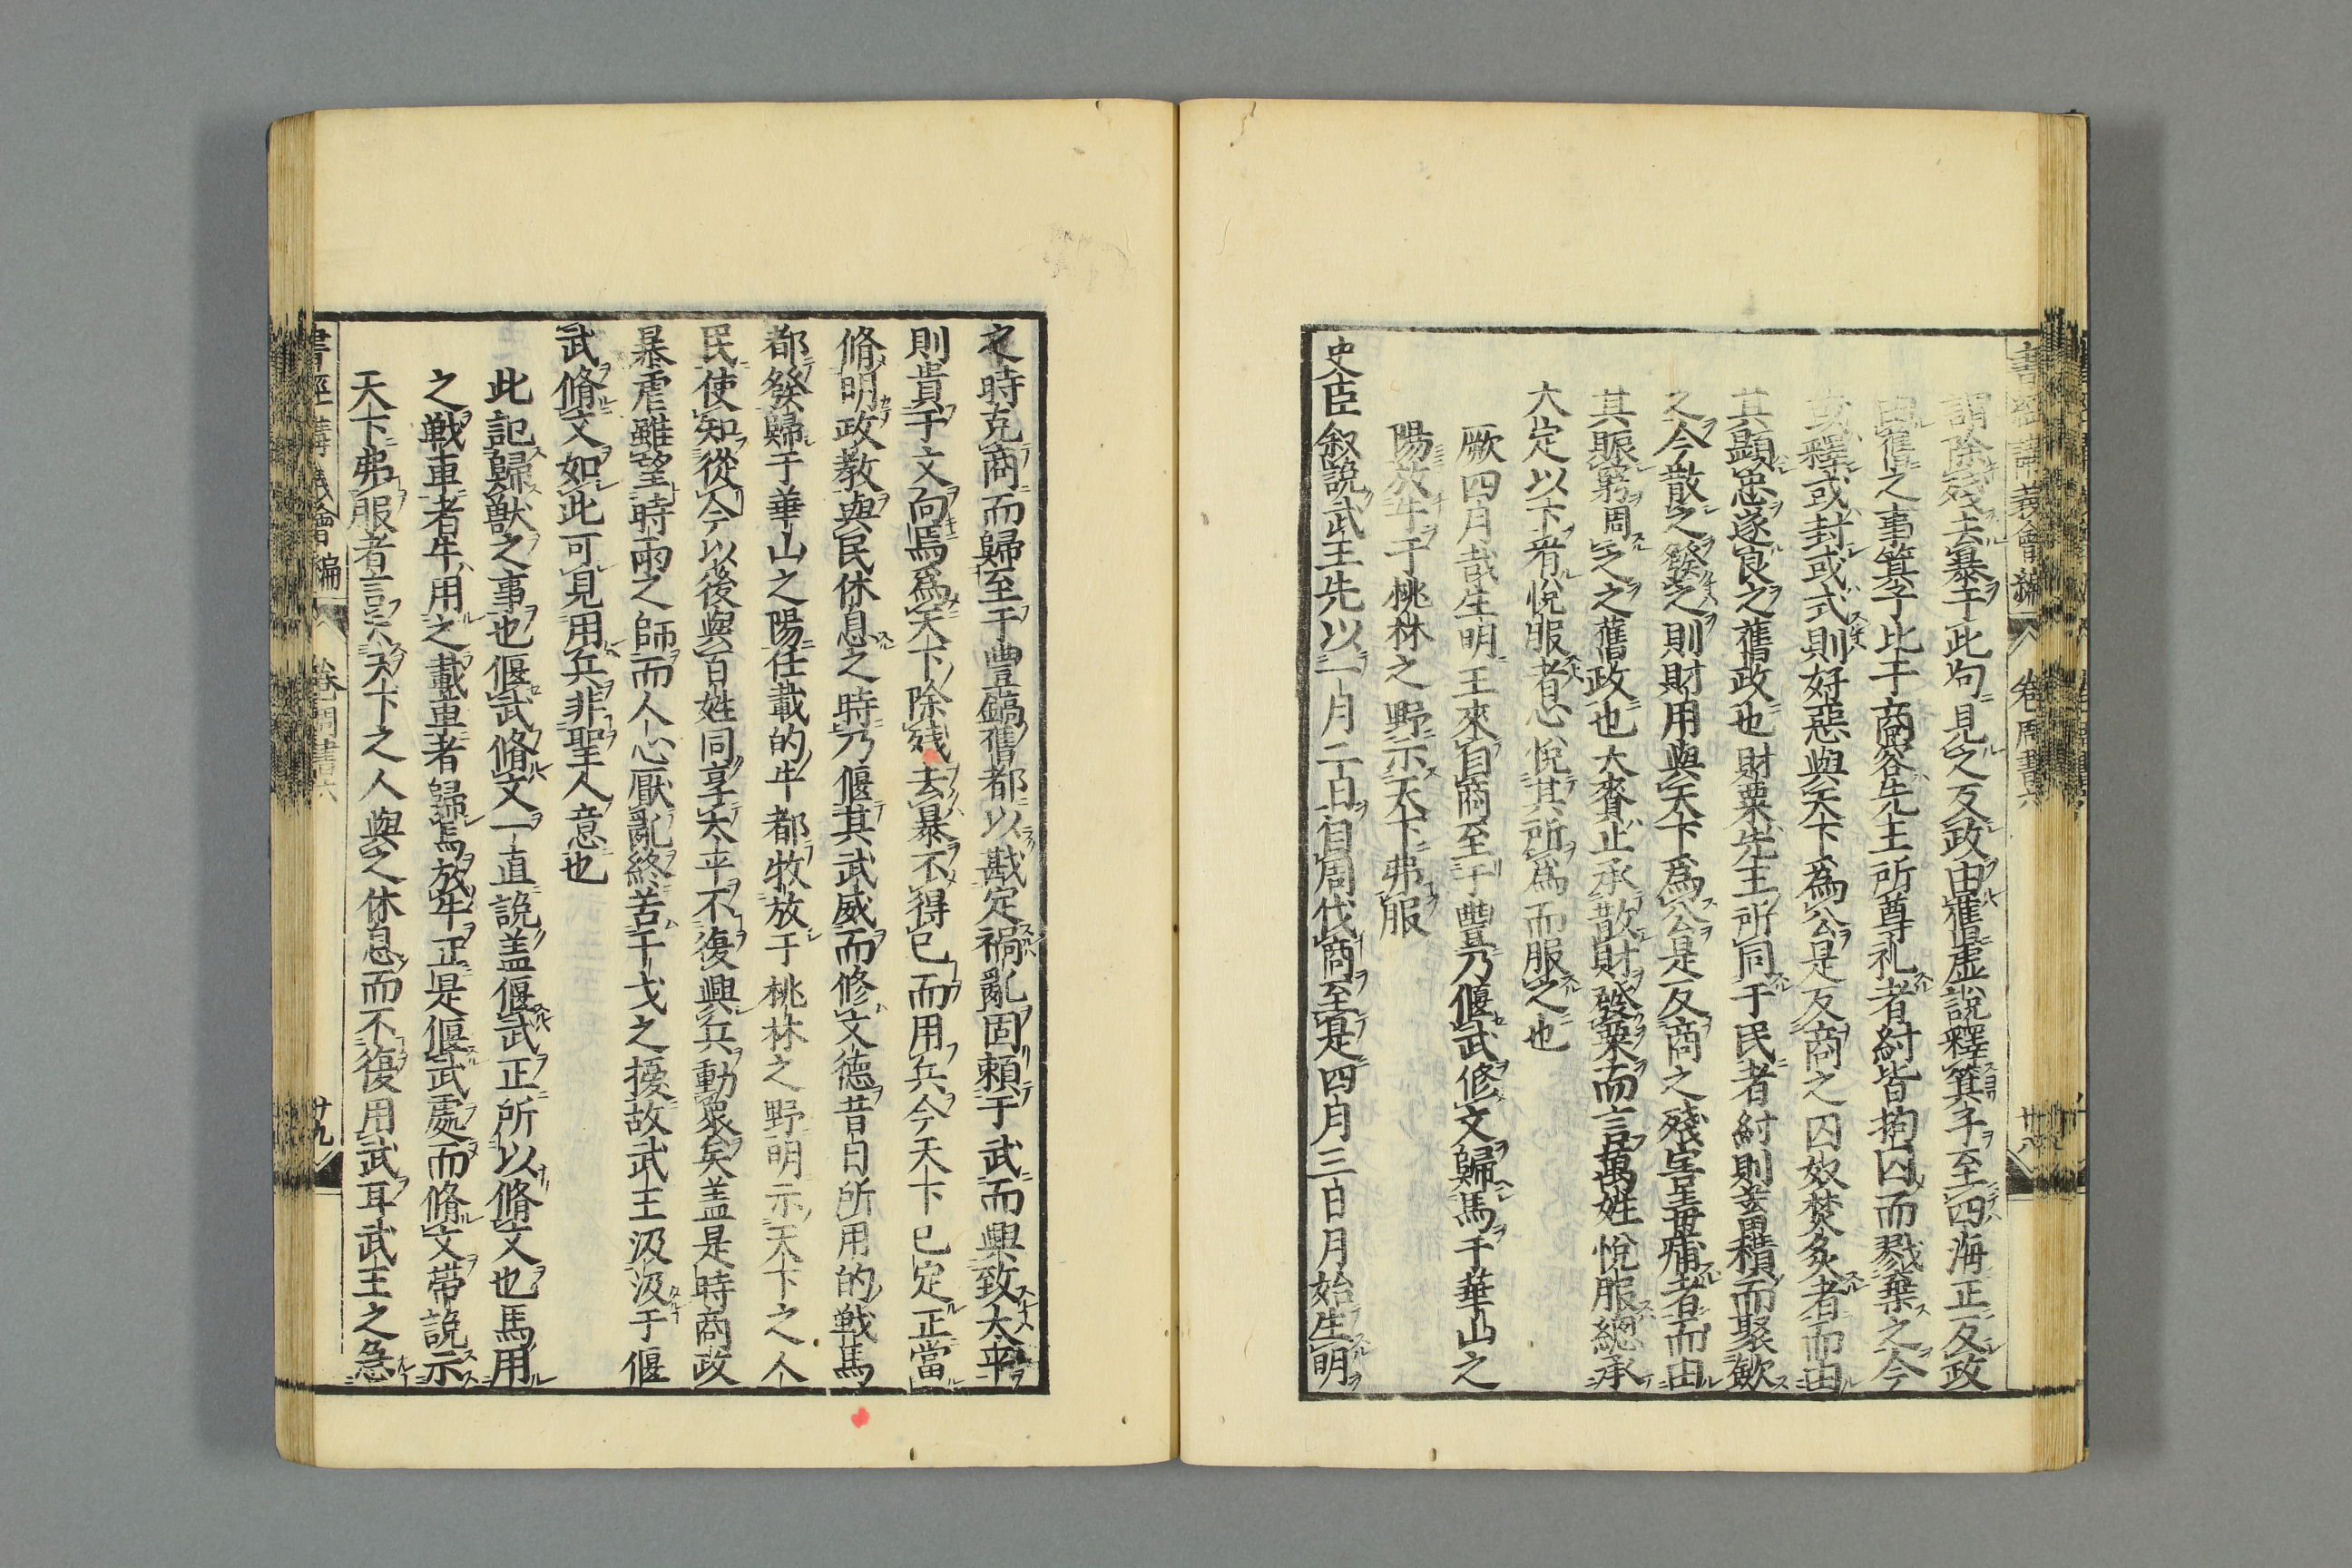 書經講義會編 卷 周書六 廿八
謂除殘去暴于此句見之反政由舊虚說釋箕子至四海正反政
由舊之事箕子比干商容先王所尊礼者紂皆拘囚而戮棄之今
或釋或封或式則好惡與天下爲公是反商之囚奴焚炙者而由
其顯忠遂良之舊政也財粟先王所同于民者紂則差畢積而聚歛
之今散之發之則財用與天下爲公是反商之殘害毒痡者而由
其賑窮周乏之舊政也大賚止承散財發粟而言萬姓悅服總承
大定以下看悅服者心悅其所爲而服之也
厥四月哉生明王來自商至于豐乃偃武修文歸馬于華山之
陽放牛于桃林之野示天下弗服
史臣叙說武王先以一月二日自周伐商至是四月三日月始生明
之時克商而歸至于豐鎬舊都以戡定禍亂固賴于武而興致太平
則貴于文向焉爲天下除殘去暴不得已而用兵今天下已定正當
脩明政教與民休息之時乃偃其武威而修文德昔日所用的戰馬
都發歸于華山之陽任載的牛都牧放于桃林之野明示天下之人
民使知從今以後與百姓同享太平不復興兵動衆矣盖是時商政
暴虐雖望時雨之師而人心厭亂終苦干戈之擾故武王汲汲于偃
武脩文如此可見用兵非聖人意也
此記歸獸之事也偃武脩文一直說盖偃武正所以脩文也馬用
之戰車者牛用之載重者歸馬放牛正是偃武處而脩文帶說示
天下弗服者言示天下之人與之休息而不復用武耳武王之急
書經講義會編 卷 周書六 廿九